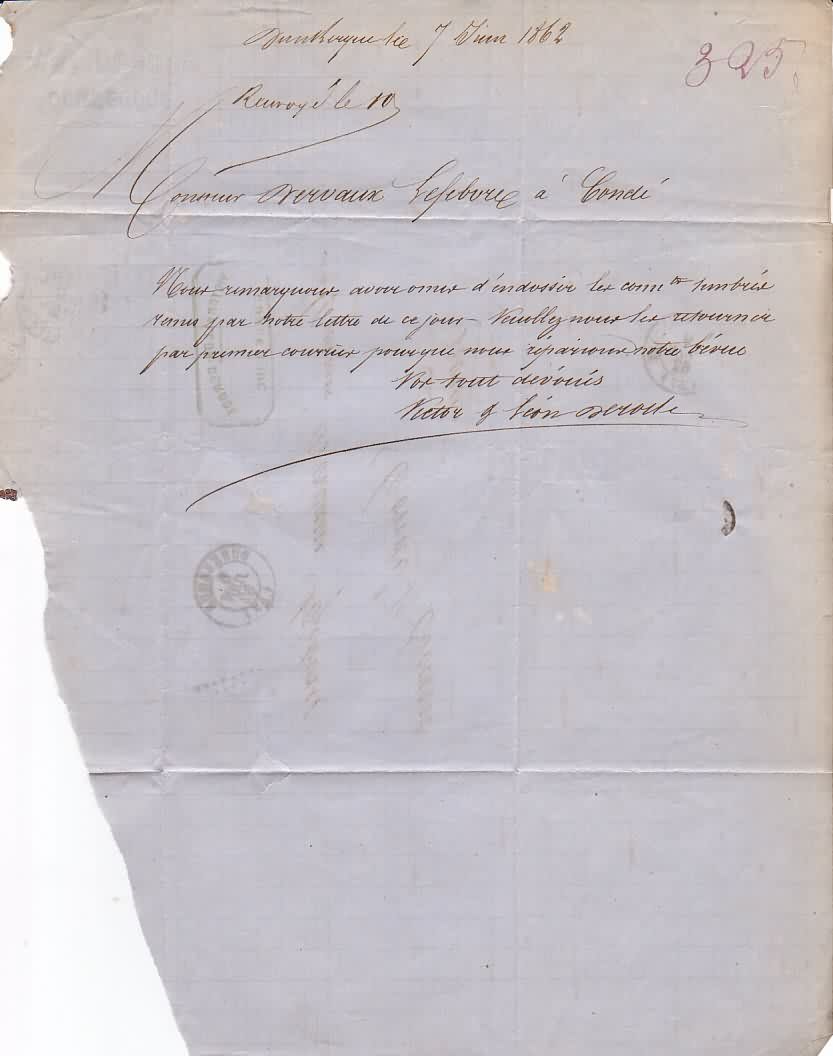 Dunkerque le 7 Juin 1862
325
Renvoyé le 10
Monsieur Dervaux Lefebvre à Condé
Nous remarquons avoir omis d'endosser les conn.ts timbrés
remis par notre lettre de ce jour - Veuillez nous les retourner
par premier courrier pour que nous réparions notre bévue
Vos tout dévoués
Victor & Léon Derode